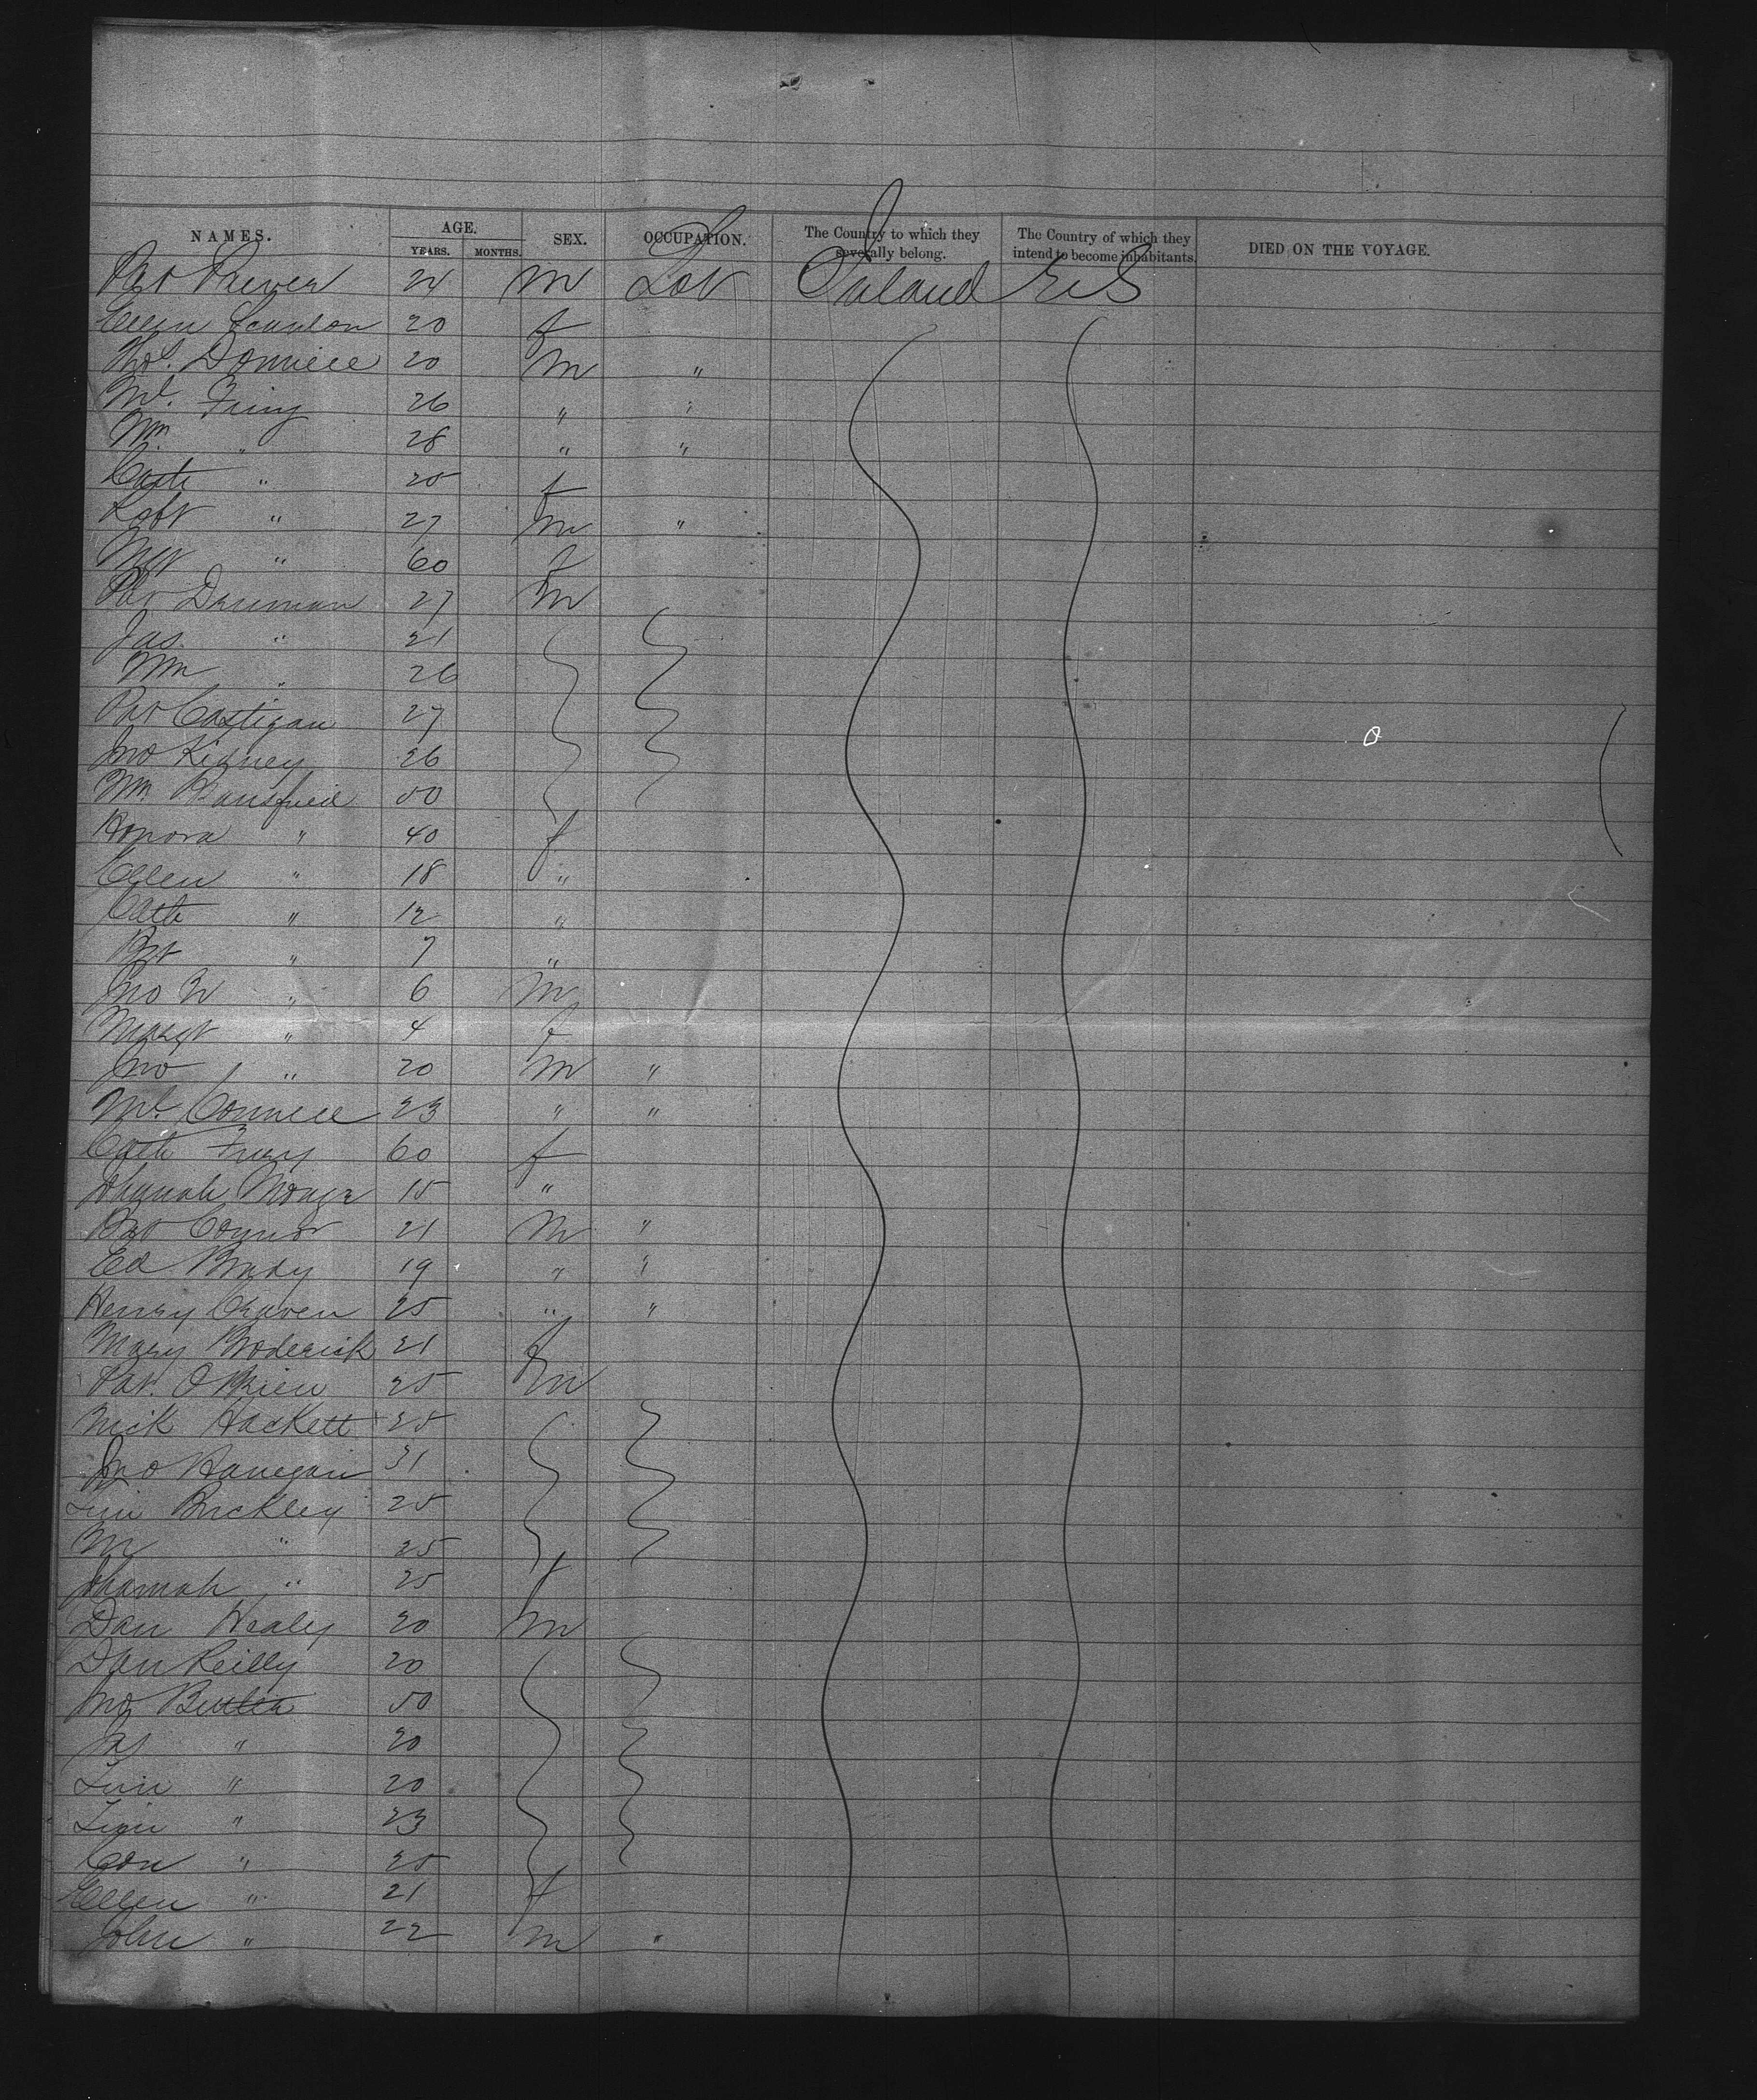 NAMES. AGE. SEX. OCCUPATION. The Country to which they severally belong. The Country of which they intend to become inhabitants. DIED ON THE VOYAGE.
YEARS. MONTHS.
Pat 24 m Lab Ireland U S
Ellen Scanlon 20 f
Thos. Donnell 20 m "
Ml. 26 " "
Wm " 28 " "
Cath " 25 f
Robt " 27 m "
" 60 f
Pat 27 m
Jas " 21
Wm " 26
Pat Costigan 27
Jno Kidney 26
Wm. 50
Honora " 40 f
Ellen " 18 "
Cath " 12 "
" 7 "
Jno " 6 m
Margt " 4 f
Jno " 20 m "
Ml. Connell 23 " "
Cath 60 f
Johanah 15 "
Pat Connor 21 m "
Ed Brady 19 " "
Henry Craven 25 " "
Mary Broderick 21 f
Pat. O'Brien 25 m
Nick Hackett 25
Jno Hanegan 31
Tim Buckley 25
M " 25
Johanah " 25 f
Dan Healy 20 m
Dan Reilly 20
Jno Butler 50
Jas " 20
Tim " 20
Tim " 23
Con " 25
Ellen " 21 f
John " 22 m "